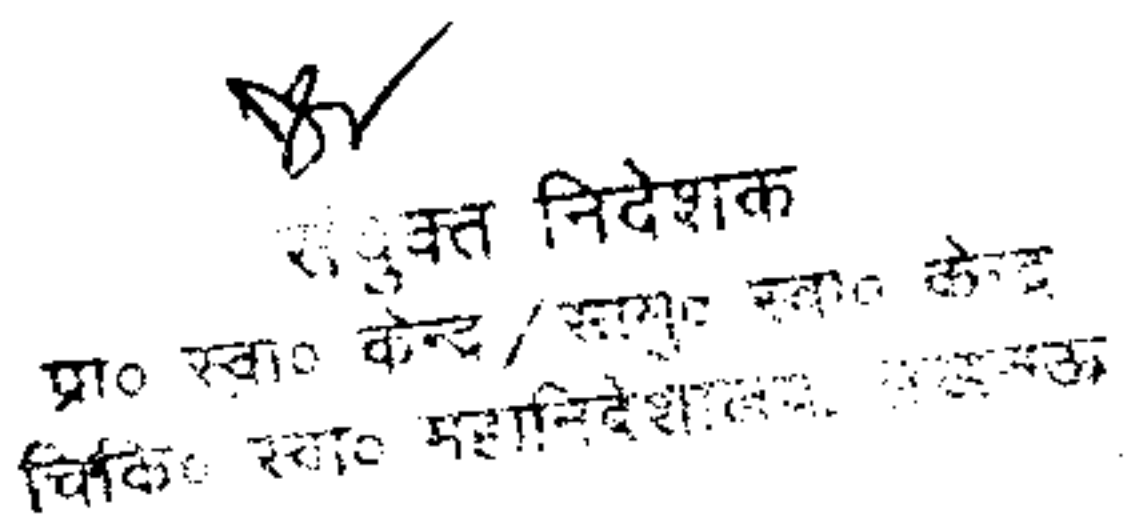 संयुक्त निदेशक
प्रा० स्वा० केन्द्र / सामु० स्वा० केन्द्र
चिकि० स्वा० महानिदेशालय, लखनऊ